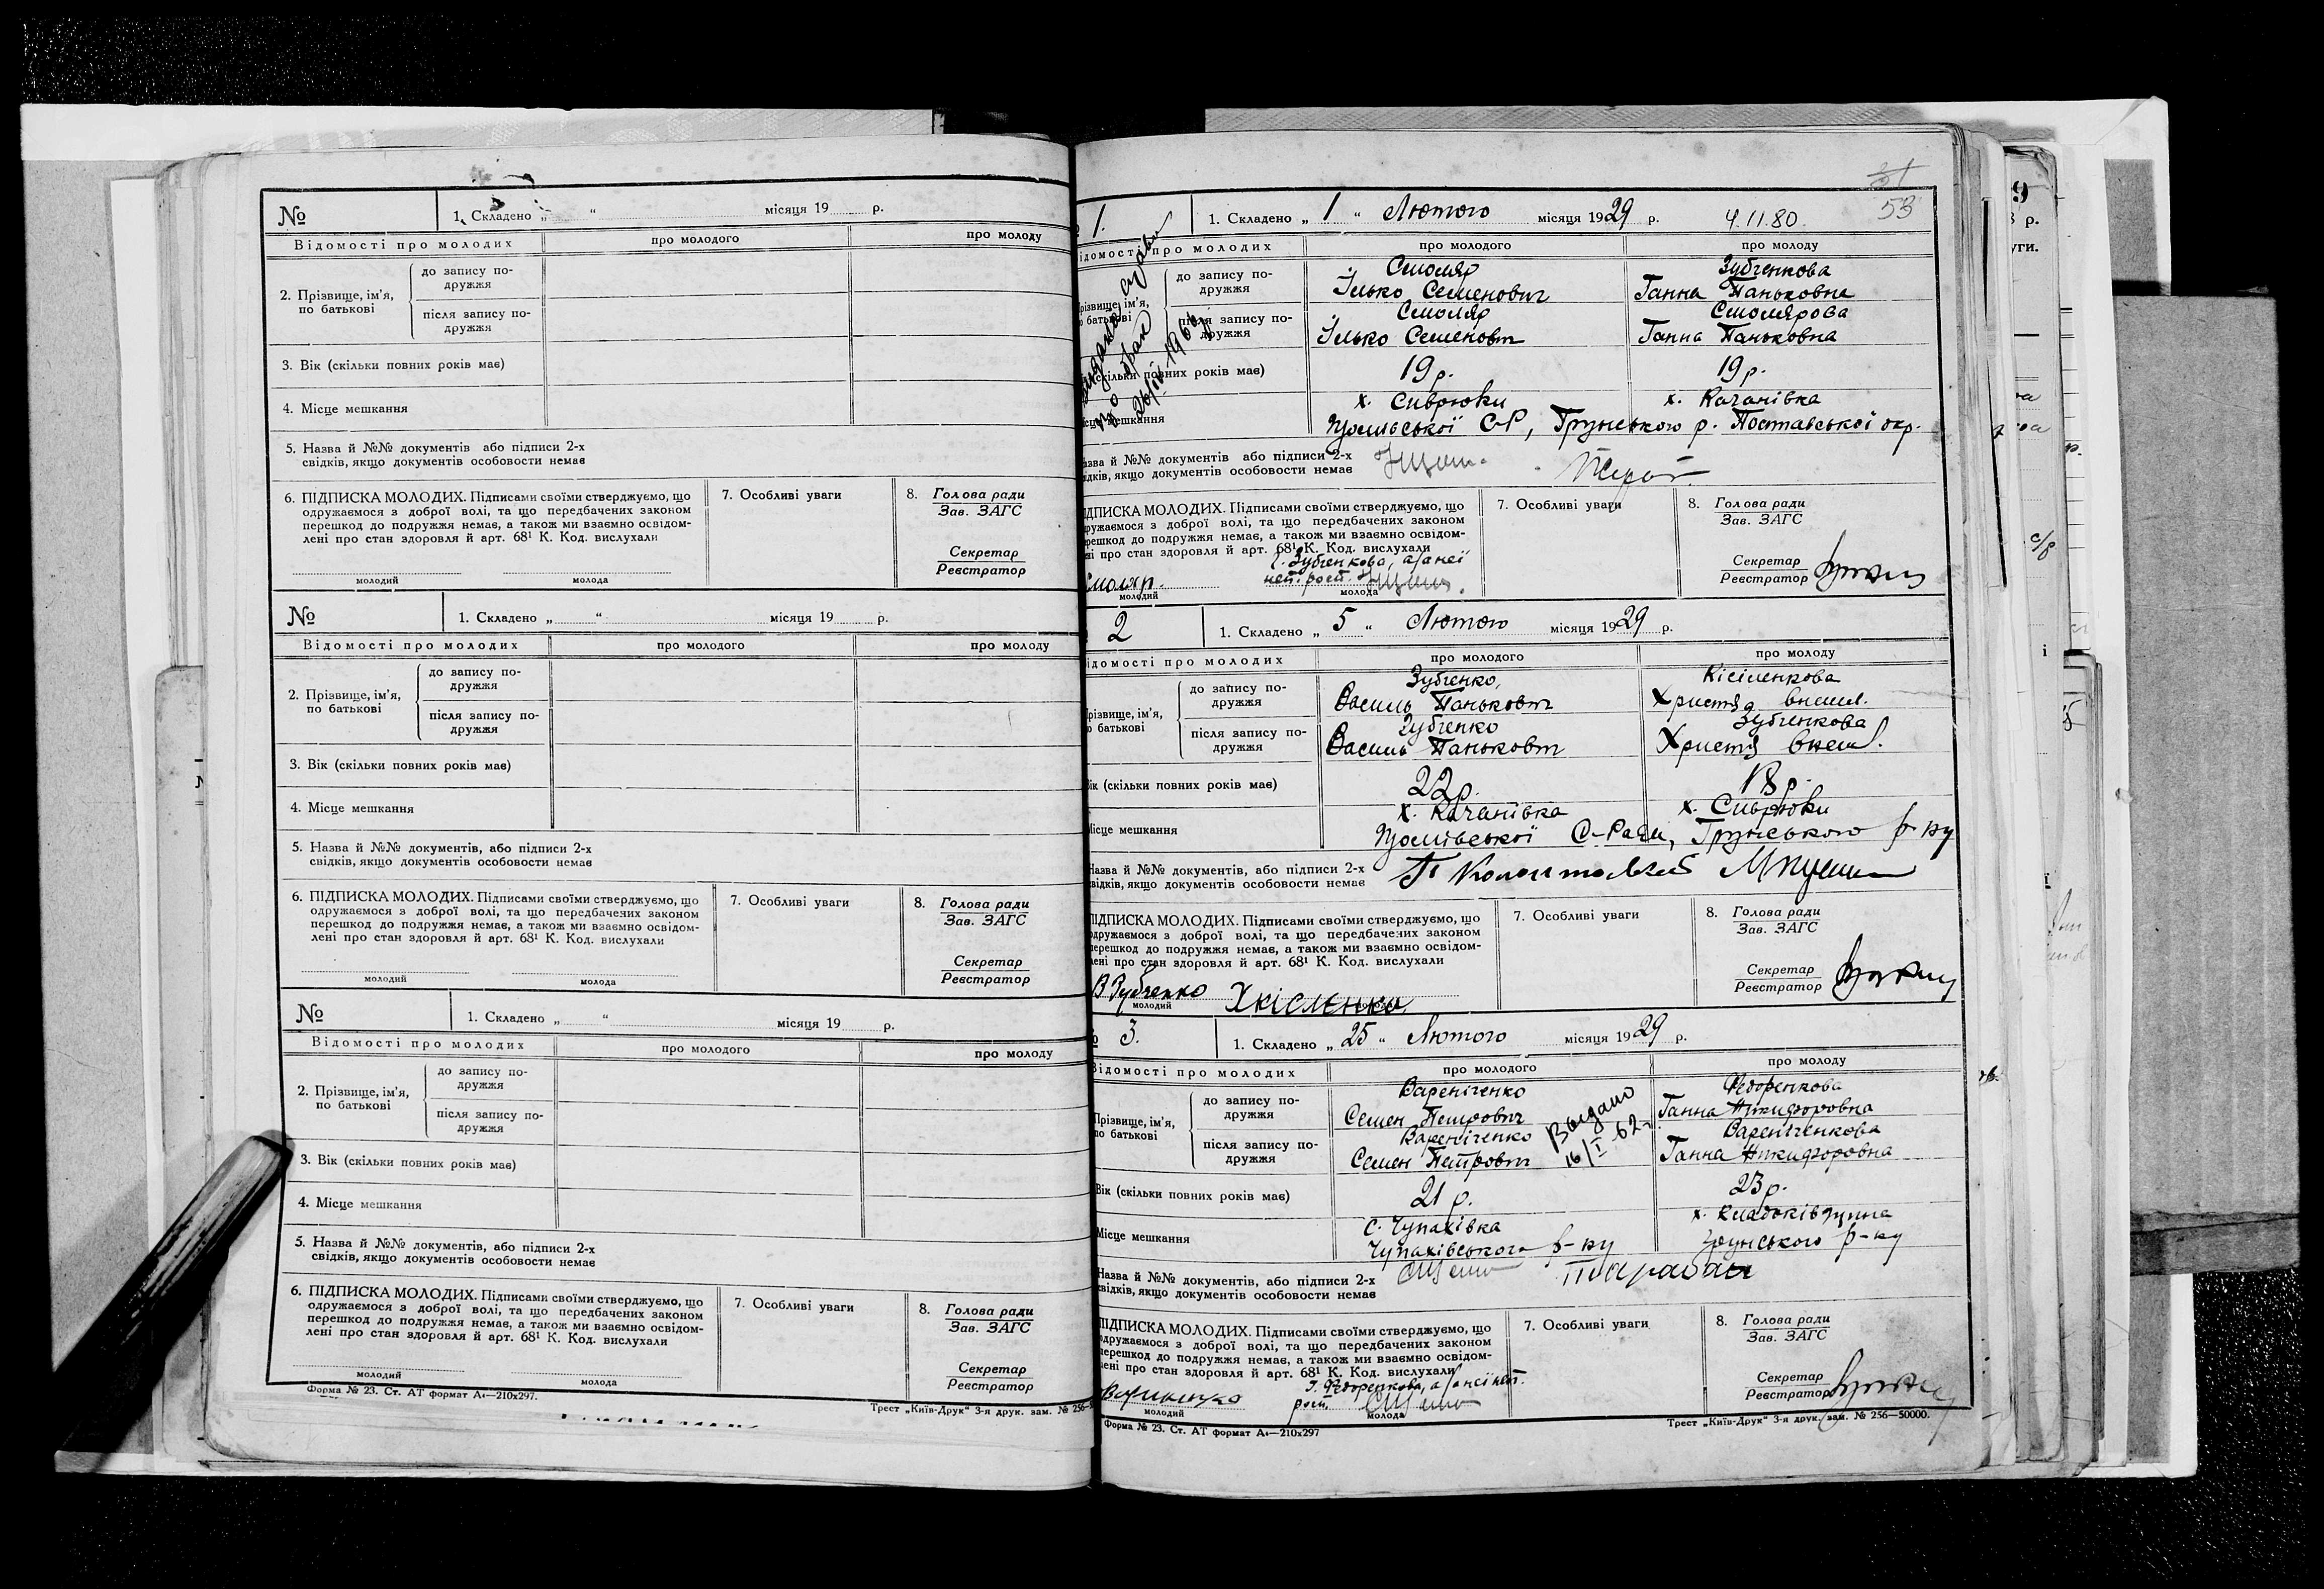 №
1. Складено „ “ місяця 19 р.
Відомості про молодих
про молодого
про молоду
2. Прізвище, ім'я, по батькові
до запису подружжя
після запису подружжя
3. Вік (скільки повних років має)
4. Місце мешкання
5. Назва й №№ документів або підписи 2-х
свідків, якщо документів особовости немає
6. ПІДПИСКА МОЛОДИХ. Підписами своїми стверджуємо, що
одружаємося з доброї волі, та що передбачених законом
перешкод до подружжя немає, а також ми взаємно освідом-
лені про стан здоровля й арт. 68¹ К. Код. вислухали
молодий
молода
7. Особливі уваги
8. Голова ради
Зав. ЗАГС
Секретар
Реєстратор
№
1. Складено „ “ місяця 19 р.
Відомості про молодих
про молодого
про молоду
2. Прізвище, ім'я, по батькові
до запису подружжя
після запису подружжя
3. Вік (скільки повних років має)
4. Місце мешкання
5. Назва й №№ документів, або підписи 2-х
свідків, якщо документів особовости немає
6. ПІДПИСКА МОЛОДИХ. Підписами своїми стверджуємо, що
одружаємося з доброї волі, та що передбачених законом
перешкод до подружжя немає, а також ми взаємно освідом-
лені про стан здоровля й арт. 68¹ К. Код. вислухали
молодий
молода
7. Особливі уваги
8. Голова ради
Зав. ЗАГС
Секретар
Реєстратор
№
1. Складено „ “ місяця 19 р.
Відомості про молодих
про молодого
про молоду
2. Прізвище, ім'я, по батькові
до запису подружжя
після запису подружжя
3. Вік (скільки повних років має)
4. Місце мешкання
5. Назва й №№ документів, або підписи 2-х
свідків, якщо документів особовости немає
6. ПІДПИСКА МОЛОДИХ. Підписами своїми стверджуємо, що
одружаємося з доброї волі, та що передбачених законом
перешкод до подружжя немає, а також ми взаємно освідом-
лені про стан здоровля й арт. 68¹ К. Код. вислухали
молодий
молода
7. Особливі уваги
8. Голова ради
Зав. ЗАГС
Секретар
Реєстратор
Форма № 23. Ст. АТ формат А4—210х297.
Трест „Київ-Друк“ 3-я друк. зам. № 256-5
53
1.
1. Складено „ 1 “ Лютого місяця 1929 р.
4.11.80.
про молодих
про молодого
про молоду
до запису подружжя
Смоляр
Ілько Семенович
Зубченкова
Ганна Паньковна
після запису подружжя
Смоляр
Ілько Семенович
Смолярова
Ганна Паньковна
повних років має)
19 р.
19 р.
х. Сиврюки
х. Качанівка
С-Р, Грунського р. Полтавської окр.
й №№ документів або підписи 2-х
якщо документів особовости немає
МОЛОДИХ. Підписами своїми стверджуємо, що
з доброї волі, та що передбачених законом
до подружжя немає, а також ми взаємно освідом-
про стан здоровля й арт. 68¹ К. Код. вислухали
Зубченкова, а за неї
Смоляр.
молодий
молода
7. Особливі уваги
8. Голова ради
Зав. ЗАГС
Секретар
Реєстратор
2
1. Складено „ 5 “ Лютого місяця 1929 р.
про молодих
про молодого
про молоду
до запису подружжя
Зубченко,
Василь Панькович
Кісіленкова
Христя
після запису подружжя
Зубченко
Василь Панькович
Зубченкова
Христя
(скільки повних років має)
22 р.
18 р.
мешкання
х. Качанівка
х. Сиврюки
С-Ради, Грунського р-ну
й №№ документів, або підписи 2-х
якщо документів особовости немає
МОЛОДИХ. Підписами своїми стверджуємо, що
з доброї волі, та що передбачених законом
до подружжя немає, а також ми взаємно освідом-
про стан здоровля й арт. 68¹ К. Код. вислухали
В Зубченко
молодий
Хкісленко
7. Особливі уваги
8. Голова ради
Зав. ЗАГС
Секретар
Реєстратор
3.
1. Складено „ 25 “ Лютого місяця 1929 р.
про молодих
про молодого
про молоду
до запису подружжя
Вареніченко
Семен Петрович
Федоренкова
Ганна Никифоровна
після запису подружжя
Вареніченко
Семен Петрович
Вареніченкова
Ганна Никифоровна
Выдано
16/I 62 г.
Вік (скільки повних років має)
21 р.
23 р.
мешкання
с. Чупахівка
Чупахівського р-ну
Грунського р-ну
Назва й №№ документів, або підписи 2-х
якщо документів особовости немає
МОЛОДИХ. Підписами своїми стверджуємо, що
з доброї волі, та що передбачених законом
до подружжя немає, а також ми взаємно освідом-
про стан здоровля й арт. 68¹ К. Код. вислухали
Г. Федоренкова, а за неї
молодий
молода
7. Особливі уваги
8. Голова ради
Зав. ЗАГС
Секретар
Реєстратор
Форма № 23. Ст. АТ формат А4—210х297
Трест „Київ-Друк“ 3-я друк. зам. № 256—50000.